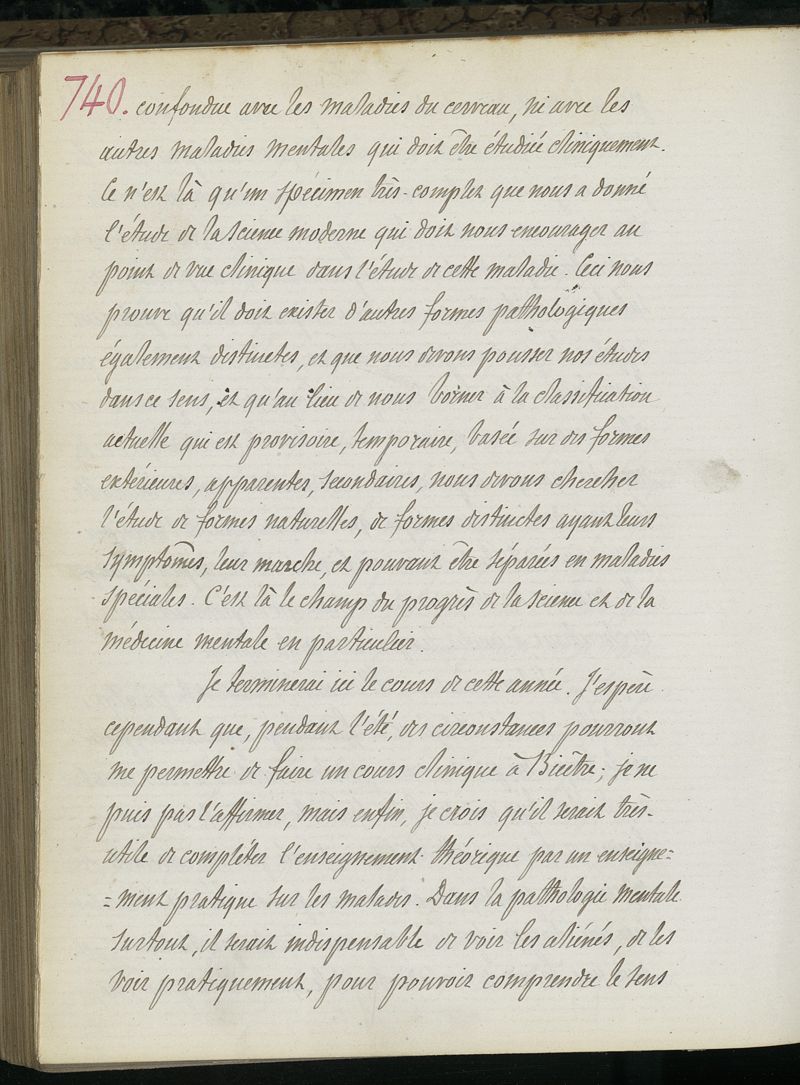 740. confondue avec les maladies du cerveau, ni avec les
autres maladies mentales qui doit être étudiée cliniquement.
Ce n'est là qu'un spécimen très-complet que nous a donné
l'étude de la science moderne qui doit nous encourager au
point de vue clinique dans l'étude de cette maladie. Ceci nous
prouve qu'il doit exister d'autres formes pathologiques
également distinctes, et que nous devons pousser nos études
dans ce sens, et qu'au lieu de nous borner à la classification
actuelle qui est provisoire, temporaire, basée sur des formes
extérieures, apparentes, secondaires, nous devons chercher
l'étude de formes naturelles, de formes distinctes ayant leurs
symptômes, leur marche, et pouvant être séparées en maladies
spéciales. C'est là le champ du progrès de la science et de la
médecine mentale en particulier.
Je terminerai ici le cours de cette année. J'espère
cependant que, pendant l'été, des circonstances pourront
me permettre de faire un cours clinique à Bicêtre; je ne
puis pas l'affirmer, mais enfin, je crois qu'il serait très-
utile de compléter l'enseignement théorique par un enseigne=
=ment pratique sur les malades. Dans la pathologie mentale
surtout, il serait indispensable de voir les aliénés, de les
voir pratiquement, pour pouvoir comprendre le sens